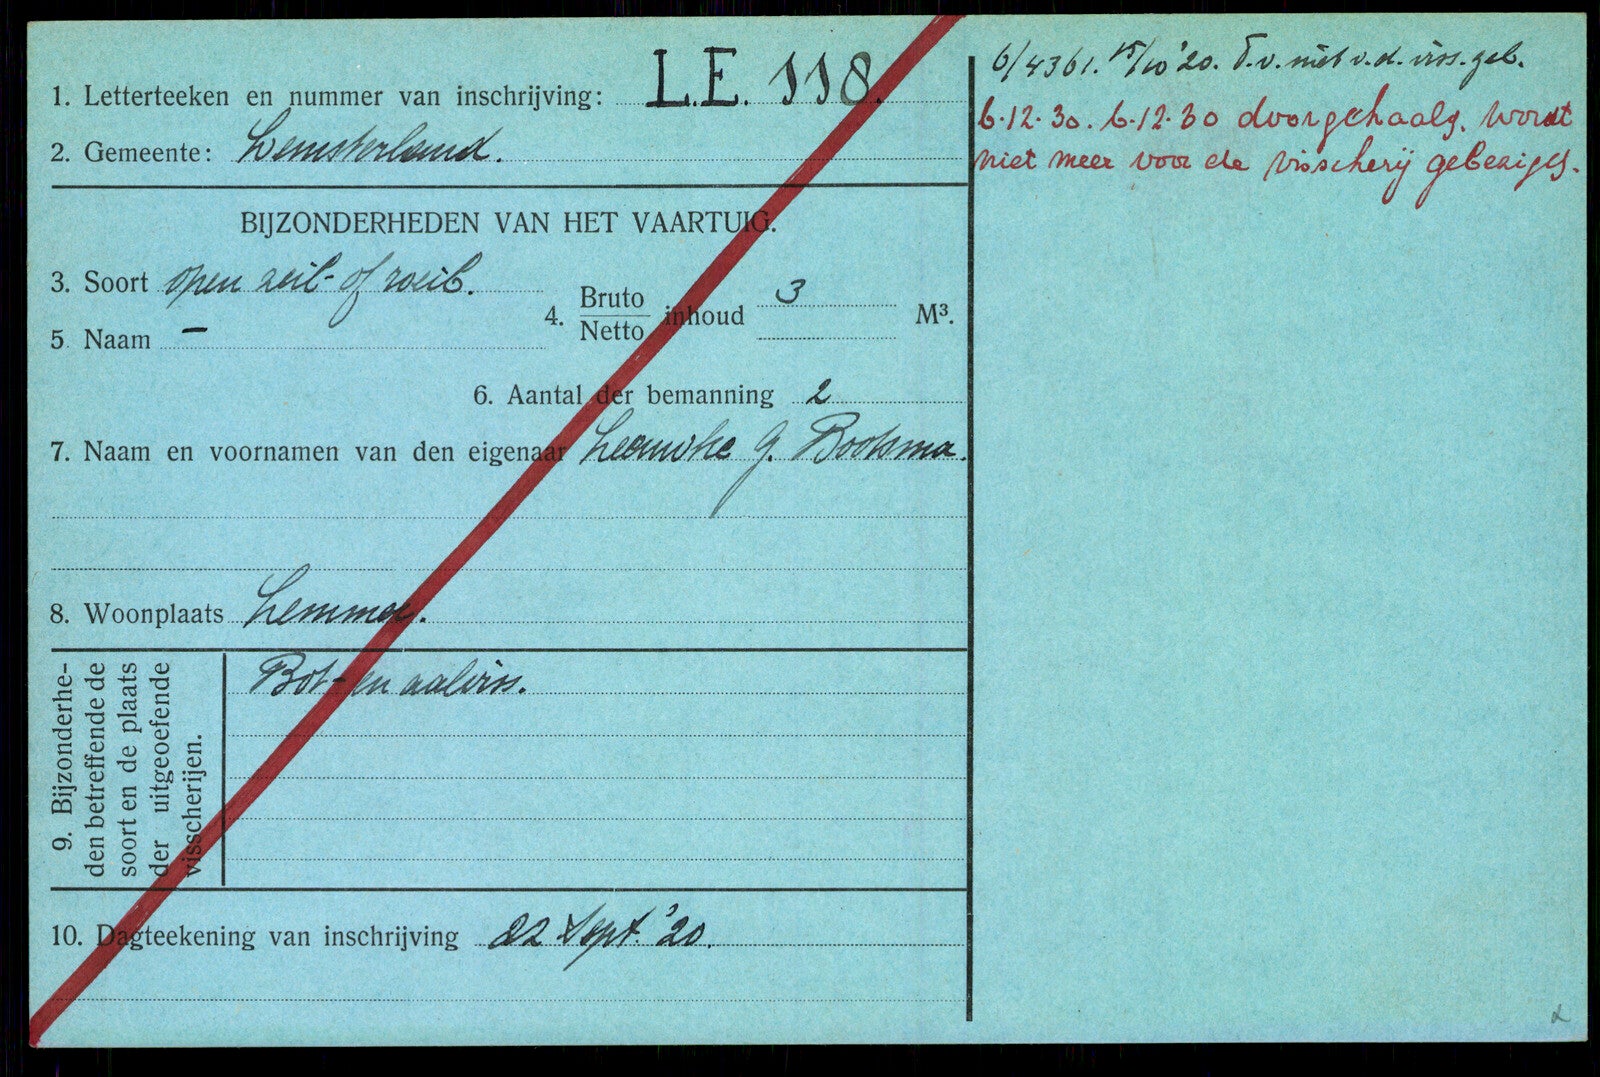 1. Letterteeken en nummer van inschrijving: L.E. 118.
2. Gemeente: Lemsterland.
BIJZONDERHEDEN VAN HET VAARTUIG.
3. Soort open zeil- of roeib.
4. Bruto Netto inhoud 3 M³.
5 Naam –
6. Aantal der bemanning 2
7. Naam en voornamen van den eigenaar Leeuwke G. Bootsma.
8. Woonplaats Lemmer.
9. Bijzonderhe-
den betreffende de
soort en de plaats
der uitgeoefende
visscherijen.
Bot- en aalvis.
10. Dagteekening van inschrijving 22 Sept. '20.
6/4361. 15/10 '20. T.v. niet v.d. viss. geb.
6.12.30. 6.12.30 doorgehaald. wordt
niet meer voor de visscherij gebezigd.